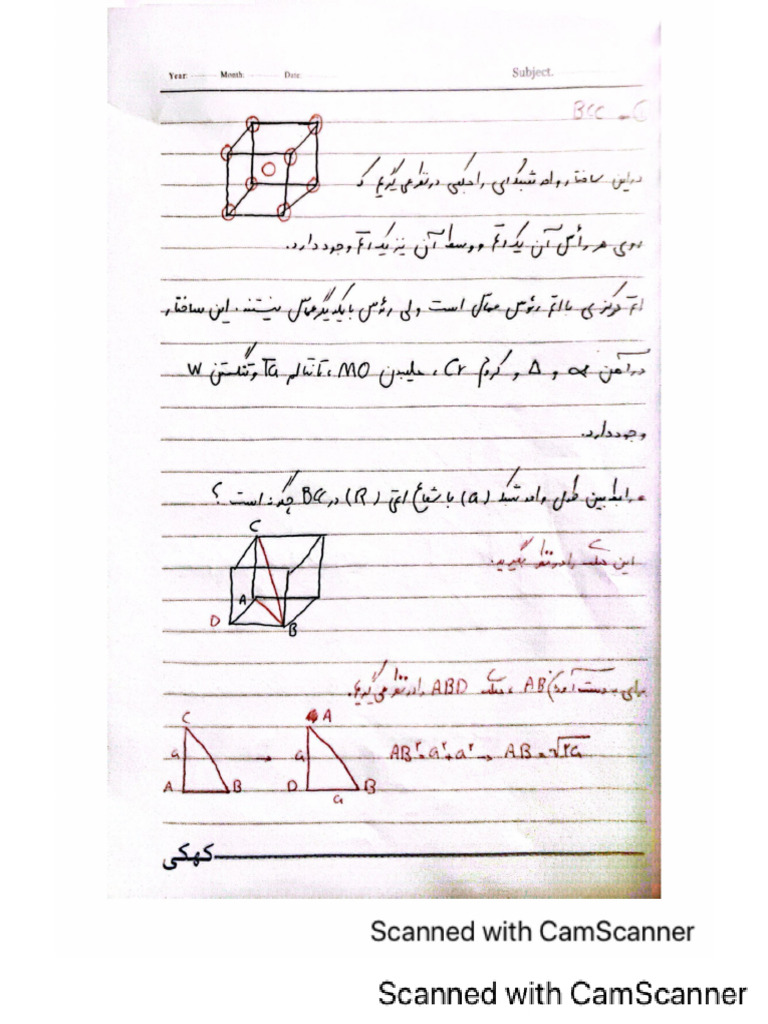 Year: Month: Date: Subject.
BCC - C
در این ساختار واحد شبکه‌ای را مکعبی در نظر می‌گیریم که
روی هر رأس آن یک اتم و وسط آن نیز یک اتم وجود دارد.
اتم مرکزی با اتم رئوس مماس است ولی رئوس با یکدیگر مماس نیستند. این ساختار
در آهن α و Δ و کروم Cr، مولیبدن MO، تانتالم Ta و تنگستن W
وجود دارد.
رابطه بین طول واحد شبکه (a) با شعاع اتمی (R) در BCC چگونه است؟
C
این مثلث را در نظر بگیرید.
A
D B
برای بدست آمدن AB، مثلث ABD را در نظر می‌گیریم.
C A
a → a AB²=a²+a² → AB=√۲a
A B D B
a
کهکی
Scanned with CamScanner
Scanned with CamScanner